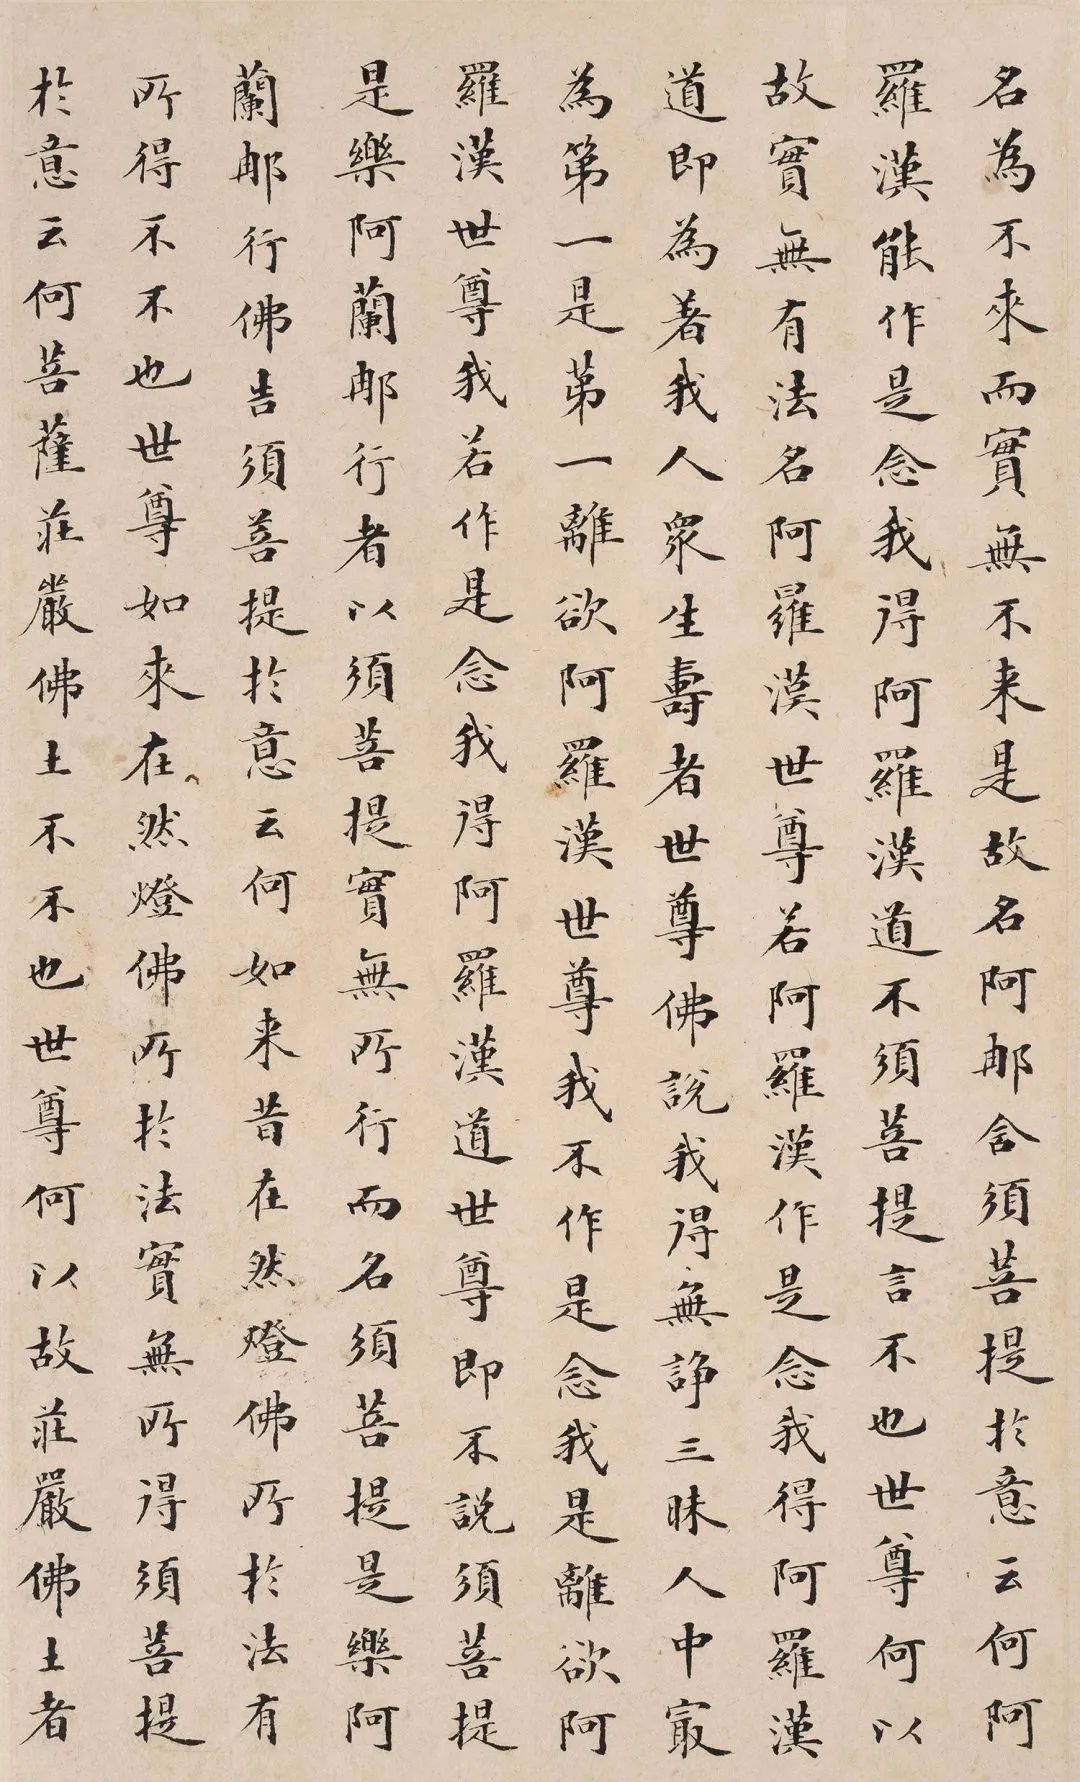 名為不來而實無不来是故名阿那含須菩提於意云何阿
羅漢能作是念我得阿羅漢道不須菩提言不也世尊何以
故實無有法名阿羅漢世尊若阿羅漢作是念我得阿羅漢
道即為著我人眾生壽者世尊佛說我得無諍三昧人中冣
為第一是第一離欲阿羅漢世尊我不作是念我是離欲阿
羅漢世尊我若作是念我得阿羅漢道世尊即不說須菩提
是樂阿蘭那行者以須菩提實無所行而名須菩提是樂阿
蘭那行佛告須菩提於意云何如来昔在然燈佛所於法有
所得不不也世尊如來在然燈佛所於法實無所得須菩提
於意云何菩薩莊嚴佛土不不也世尊何以故莊嚴佛土者